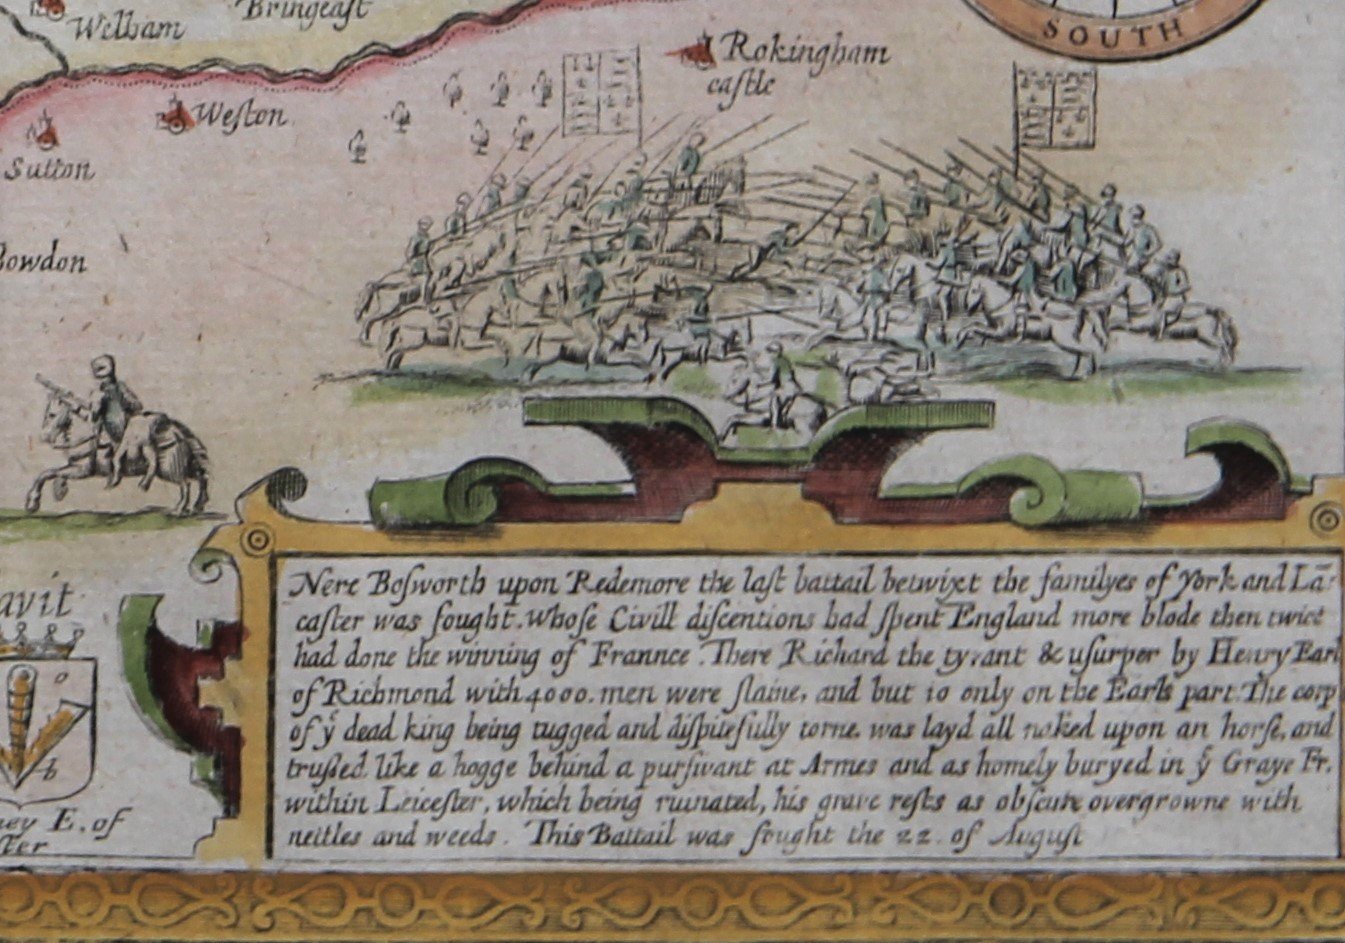 Welham
Bringeast
SOUTH
Rokingham
castle
Weston
Sutton
Bowdon
Nere Bosworth upon Redemore the last battail betwixt the familyes of York and Lā
caster was fought. Whose Civill discentions had spent England more blode then twice
had done the winning of Frannce. There Richard the tyrant & usurper by Henry Earl
of Richmond with 4000. men were slaine, and but 10 only on the Earls part. The corp
of yͤ dead king being tugged and dispitefully torne, was layd all naked upon an horse, and
trussed like a hogge behind a pursivant at Armes and as homely buryed in yͤ Graye Fr.
within Leicester, which being ruinated, his grave rests as obscure overgrowne with
nettles and weeds. This Battail was fought the 22. of August
avit
a
b
ey E. of
ster